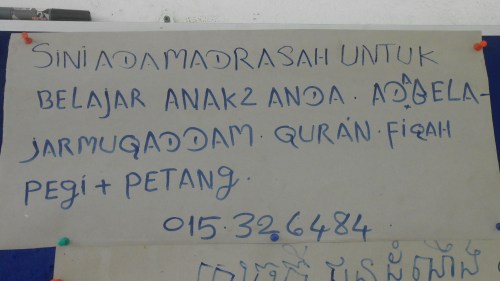 SINI ADA MADRASAH UNTUK
BELAJAR ANAK2 ANDA. ADA BELA-
JAR MUQADDAM. QURAN. FIQAH
PEGI + PETANG.
015.326484.